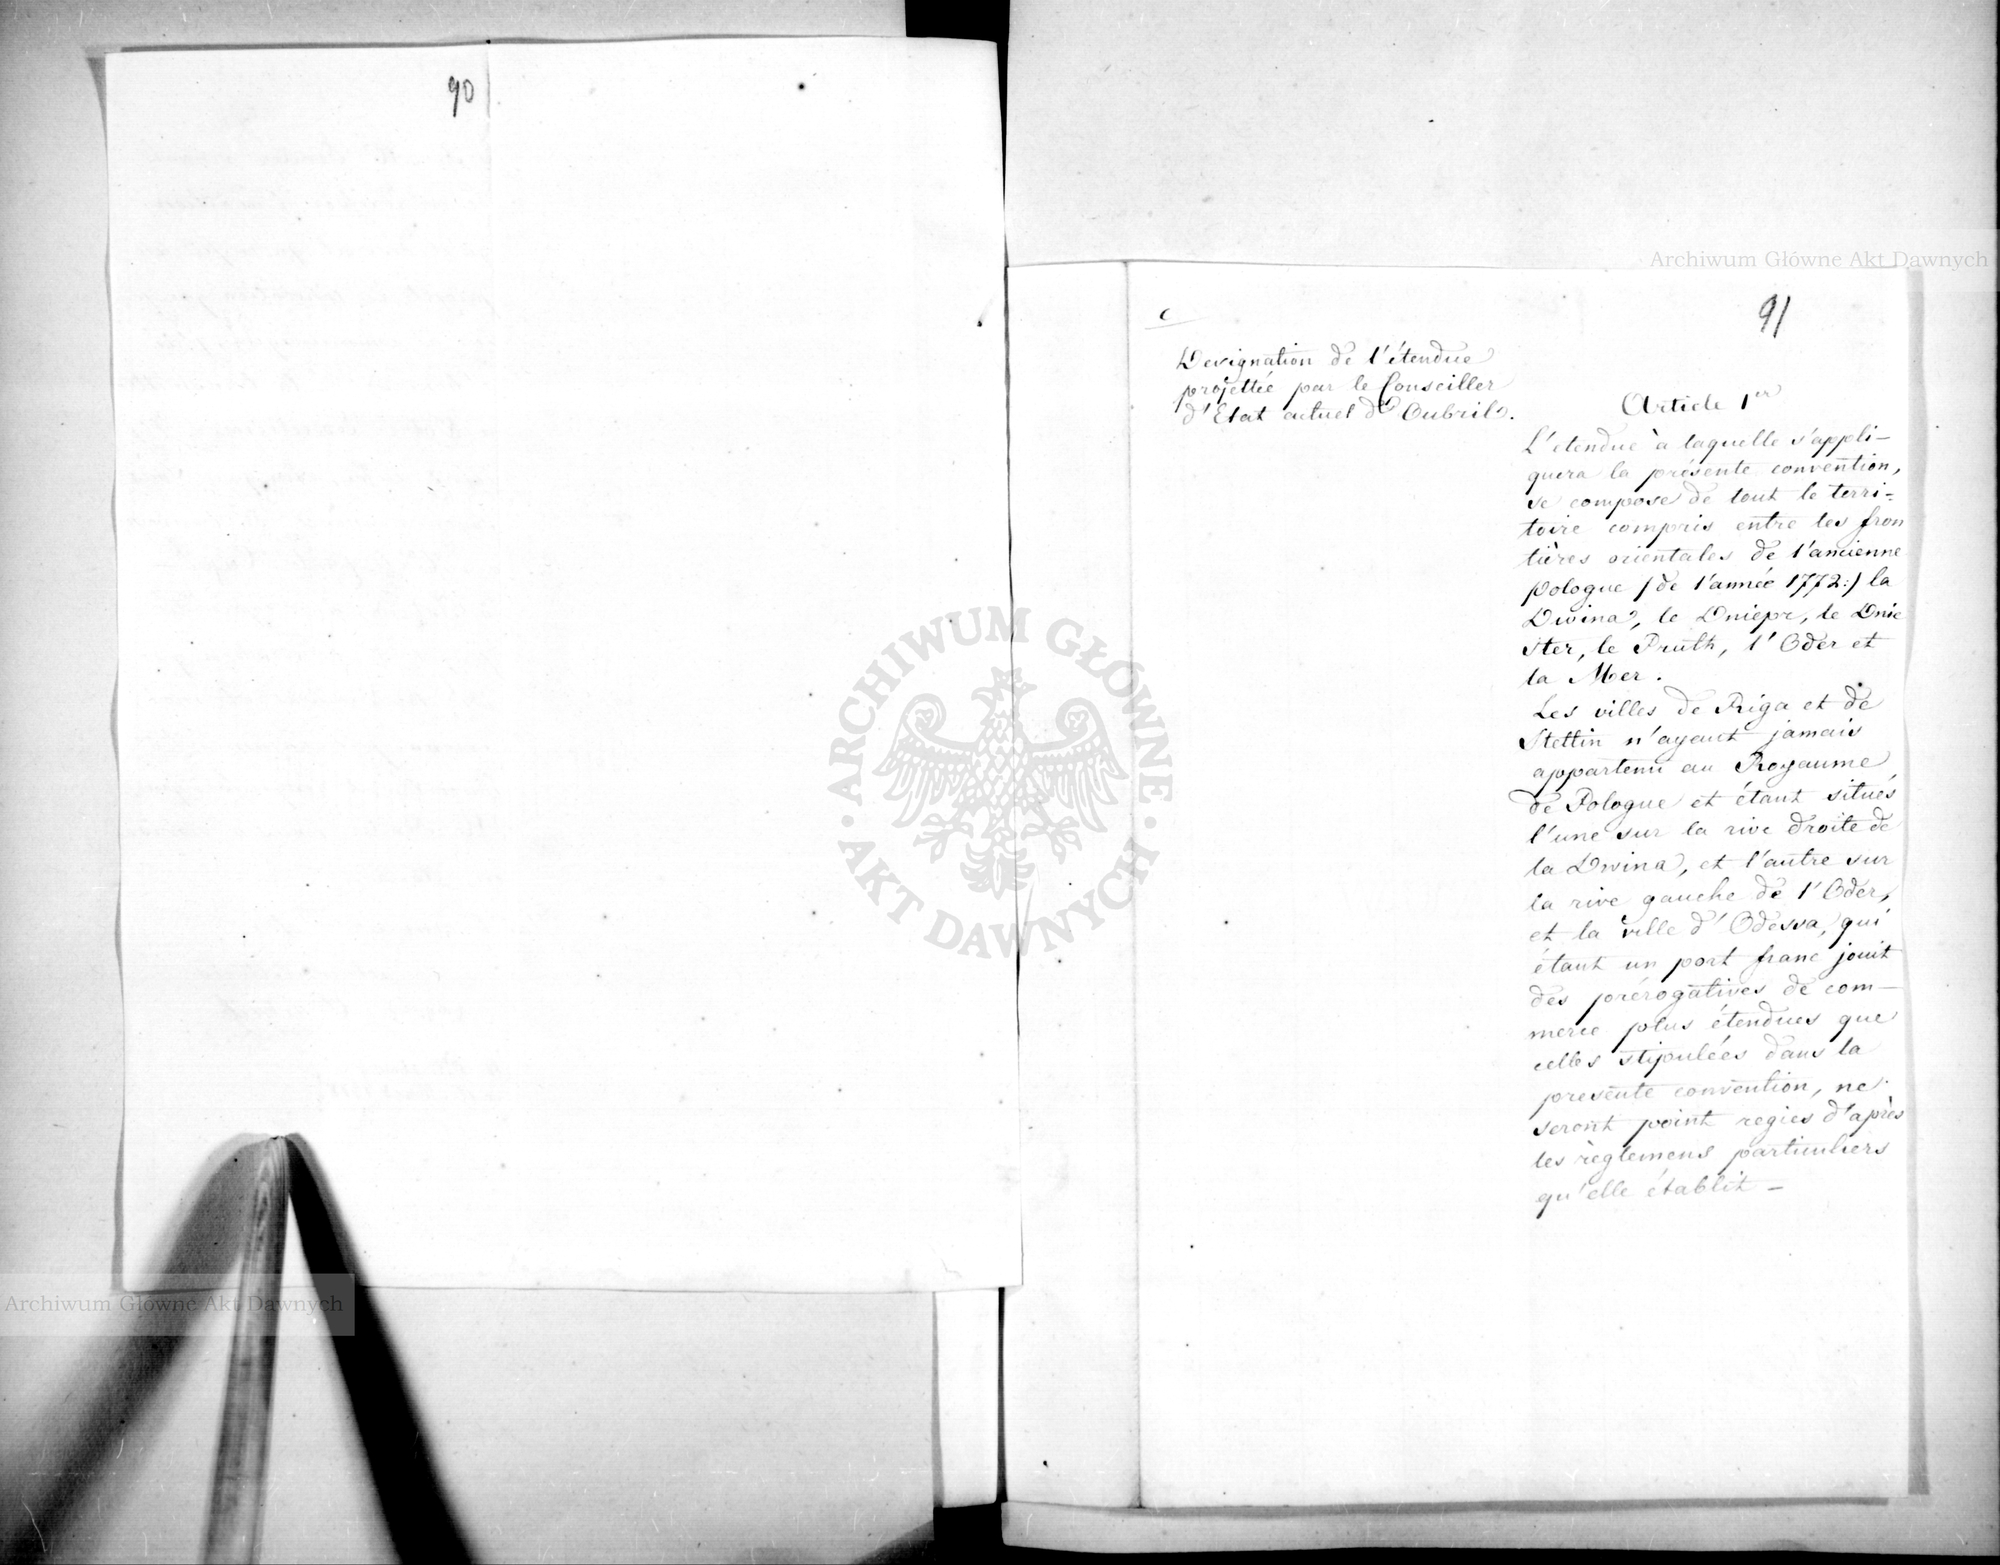 90
91
c
Designation de l'étendue
projettée par le Conseiller
d'Etat actuel d'Oubril.
Article 1er
L'etendue à laquelle s'appli-
quera la présente convention,
se compose de tout le terri-
toire compris entre les fron
tières orientales de l'ancienne
pologue (de l'année 1772:) la
Dwina, le Dniepr, le Dnie
ster, le Pruth, l'Oder et
la Mer.
Les villes de Riga et de
Stettin n'ayant jamais
appartenu au Royaume
de Pologne et étant situés
l'une sur la rive droite de
la Dwina, et l'autre sur
la rive gauche de l'Oder,
et la ville d'Odessa, qui
étant un port franc jouit
des prérogatives de com-
merce plus étendues que
celles stipulées dans la
presente convention, ne
seront point regies d'après
les règlemens particuliers
qu'elle établit -
Archiwum Główne Akt Dawnych
Archiwum Główne Akt Dawnych
ARCHIWUM GŁÓWNE
AKT DAWNYCH